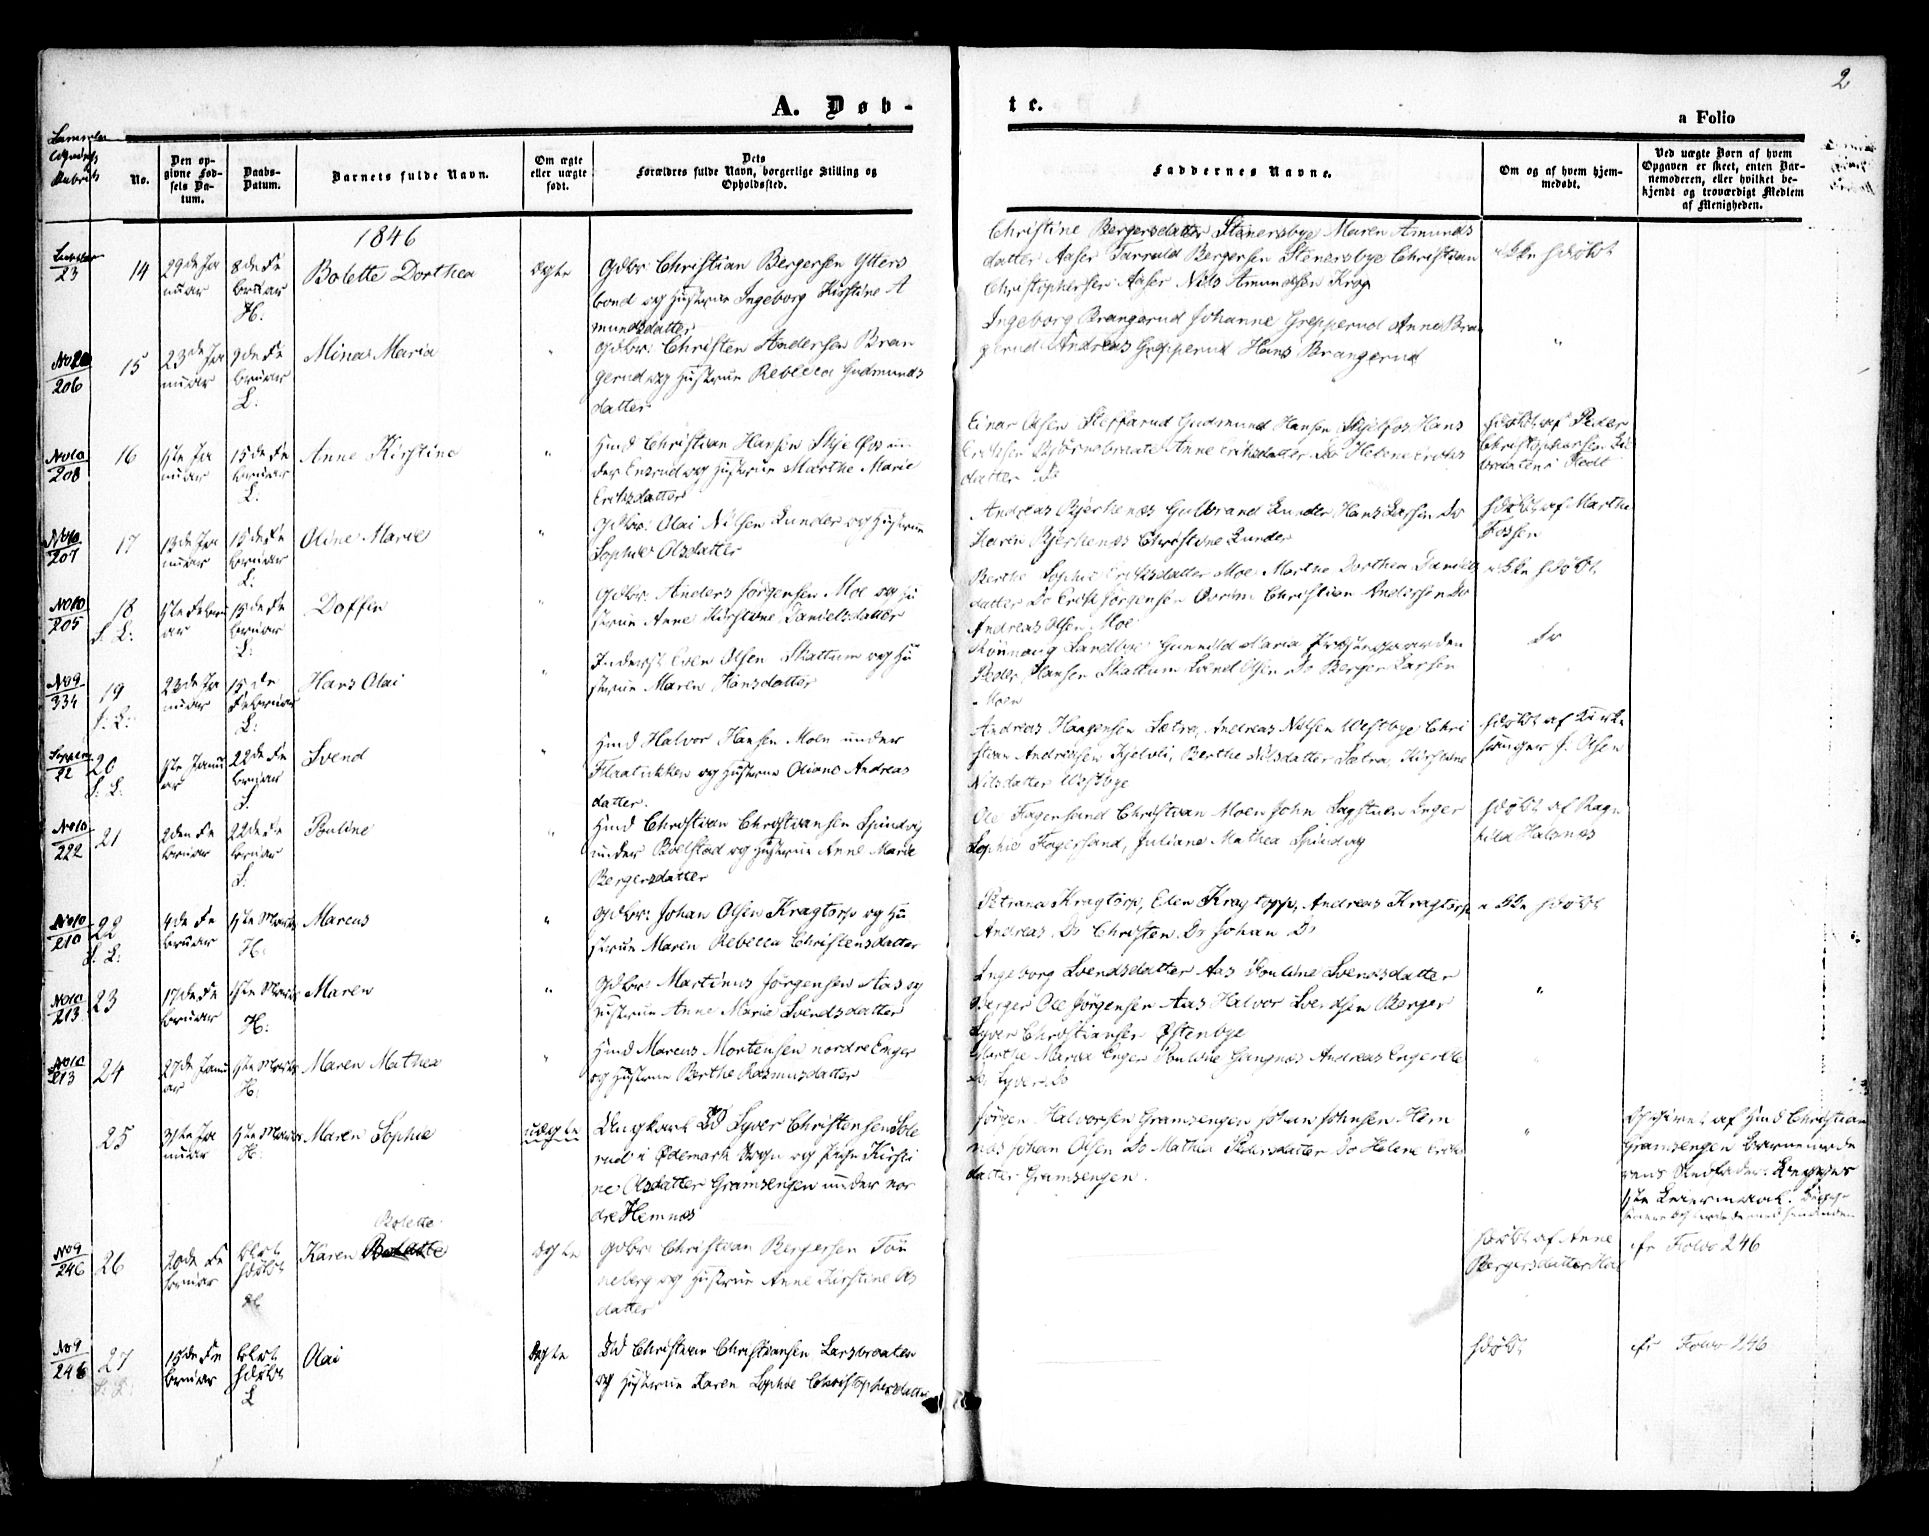 2
A. Døb-
te.
a Folio
No.
Den op-
givne Fød-
sels Da-
tum.
Daabs-
Datum.
Barnets fulde Navn.
Om ægte
eller uægte
født.
Dets
Forældres fulde Navn, borgerlige Stilling og
Opholdssted.
Faddernes Navne.
Om og af hvem hjem-
medøbt.
Ved uægte Børn af hvem
Opgaven er skeet, enten Bar-
nemoderen, eller hvilket be-
kjendt og troværdigt Medlem
af Menigheden.
1846
23
14
29de Ja
nuar
8de Fe
bruar
H:
Bolette Dorthea
ægte
Gdbr: Christian Bergersen Ytters
bond og Hustrue Ingeborg Kirstine A
mundsdatter
Christine Bergersdatter Stenersbye Maren Amunds
datter Aaser Tarrald Bergersen Stenersbye Christian
Christophersen Aaser Nils Amundsen Krog
ikke hdøbt
206
15
23de Ja
nuar
9de Fe
bruar
L:
Mina Maria
"
Gdbr: Christen Andersen Bran
gerud og Hustrue Rebecca Gudmunds
datter
Ingeborg Brangerud Johanne Grepperud Anne Bran
gerud Andreas Grepperud Hans Brangerud
"
No10
208
16
1ste Ja
nuar
15de Fe
bruar
L:
Anne Kirstine
"
Hmd Christian Hansen Skjelfos un
der Ensrud og Hustrue Marthe Marie
Eriksdatter
Einar Olsen Steffarud Gudmund Hansen Skjelfos Hans
Eriksen Bjørnebraate Anne Eriksdatter Do Helene Eriks
datter Do
hdøbt af Peder
Christophersen
No10
207
17
13de Ja
nuar
15de Fe
bruar
L:
Oline Marie
"
Gdbr: Olai Nilsen Lunder og Hustrue
Sophie Olsdatter
Andreas Bjerkenæs Gulbrand Lunder, Hans Larsen Do
Karen Bjerkenæs Christine Lunder
hdøbt af Marthe
Fossen
No10
205
18
1ste Febru
ar
15de Fe
bruar
L:
Doffin
Gdbr: Anders Jørgensen Moe og Hu
strue Anne Kirstine Danielsdatter
Berthe Sophie Eriksdatter Moe Marthe Dorthea Daniels
datter Do Erik Jørgensen Christian Andersen Do
Andreas Olsen Moe
ikke hdøbt
No9
334
19
23de Ja
nuar
15de
Februar
L:
Hans Olai
"
Inderst Even Olsen Skattum og Hu
strue Maren Hansdatter
Rønnaug Sandbye Gunnild Maria
Peder Hansen Skattum Svend Olsen Do Berger Larsen
Moen
Do
22
20
1ste Janu
ar
22de Fe
bruar
S.
Svend
"
Hmd Halvor Hansen Moen under
Flaatvikken og Hustrue Oliane Andreas
datter.
Andreas Haagensen Sætra, Andreas Nilsen Westbye Chri
stian Andersen Kjelvli, Berthe Nilsdatter Sætra, Kirstine
Nilsdatter Westbye
hdøbt af Kirke
sanger J. Olsen
No10
222
21
2den Fe
bruar
22de Fe
bruar
S.
Pauline
"
Hmd Christian Christiansen Spindvig
under Bolstad og Hustrue Anne Marie
Bergersdatter
Ole Fagersand Christian Moen John Sagstuen Inger
Sophie Fagersand, Juliane Mathea Spindvig
hdøbt af Ragn
hild Halsnæs
No10
210
22
4de Fe
bruar
1ste Marts
H:
Marcus
"
Gdbr: Johan Olsen Kragtorp og Hu
strue Maren Rebecca Christensdatter
Petrana Kragtorp, Elen Kragtorp, Andreas Kragtorp
Andreas Do Christen Do Johan Do
ikke hdøbt
No10
213
23
17de Fe
bruar
1ste Marts
H:
Maren
"
Gdbr: Martinus Jørgensen Aas og
Hustrue Anne Marie Svendsdatter
Ingeborg Svendsdatter Aas Pauline Svendsdatter
Berger Ole Jørgensen Aas Halvor Svendsen Berger
Syver Christiansen Østenbye
"
No10
213
24
27de Janu
ar
1ste Marts
H:
Maren Mathea
"
Hmd Marcus Mortensen nordre Enger
og Hustrue Berthe Rasmusdatter
Marthe Maria Enger Pauline Andreas Enger Ole
Do Syver Do
25
31te Ja
nuar
1ste Marts
H:
Maren Sophie
uægte
Ungkarl Syver Christensen Sole
rud i Ødemark Sogn og Pige Kirsti
ne Olsdatter Gramsengen under nor
dre Hemnæs
Jørgen Halvorsen Gramsengen Johan Johnsen Hem
næs Johan Olsen Do Mathea Pedersdatter Do Helene Eriks
datter Gramsengen.
"
Opgivet af Hmd Christian
Gramsengen Barnemode
rens Stedfader. Begges
1ste Leiermaal.
No9
246
26
20de Fe
bruar
blot
hdøbt
H
Bolette
Karen
ægte
Gdbr: Christian Bergersen Tøn
neberg og Hustrue Anne Kirstine Ols
datter
hdøbt af Anne
Bergersdatter
cfr Folio 246
No9
246
27
15de Fe
bruar
blot
hdøbt
L
Olai
ægte
Christian Christiansen Larsbraaten
og Hustrue Karen Sophie Christophersdatter
hdøbt
cfr Folio 246